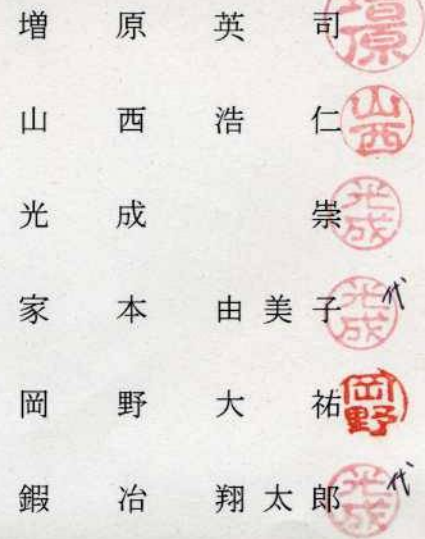 増原英司 増原
山西浩仁 山西
光成崇 光成
家本由美子 光成 代
岡野大祐 岡野
鍜冶翔太郎 光成 代